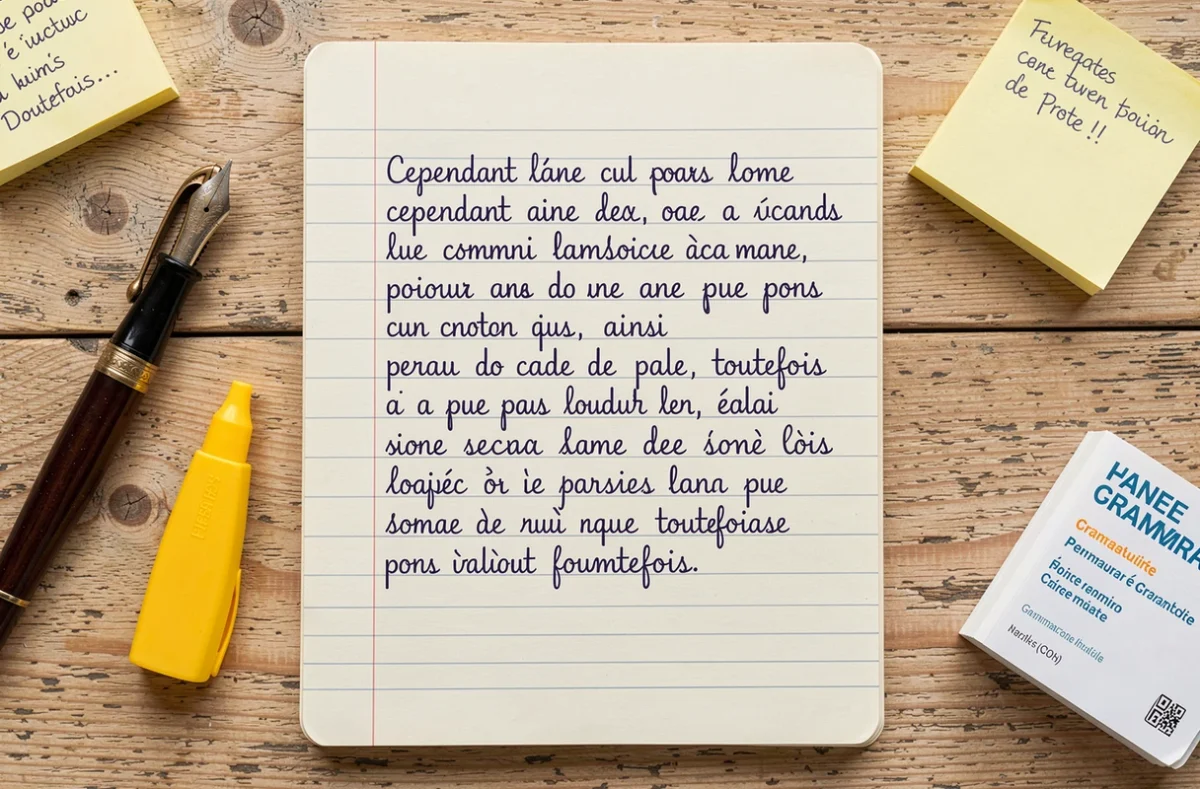 se pou
é iuctuc
a kuim's
Doutefais...
Furegates
cone twen þouián
de Prote !!
Cependant láne cul poars lome
cependant aine dex, oae a úcands
lue commni lamsoicue àca mane,
poiour ans do ine ane pue pons
cun cnoton qius, ainsi
perau do cade de pale, toutefois
ai a pue pais loudur len, éalai
sione secna lame dee sonè lòis
loajéc òr ìe parsies lana pue
somae de nuiì nque toutefoiase
pons ìvalìout foumtefois.
HANEE
GRAMMIRA
Cramaatulite
Permaurar é Grarantdie
Roince renmiro
Cőirce múate
Narlks (COH)